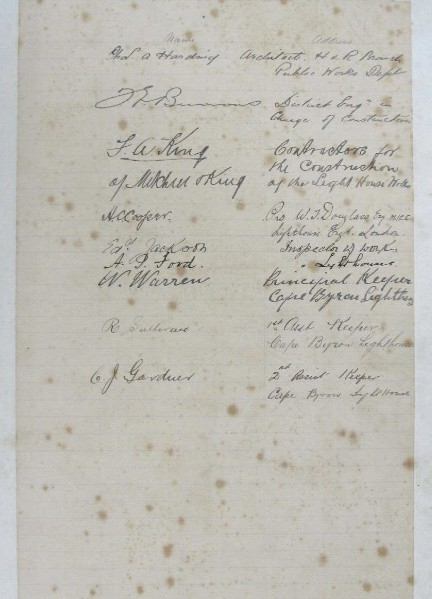 Name Address
Chas. A Harding Architect, H & R Branch
Public Works Dept
District Engr in
Charge of Construction
F. A. King Contractors for
the Construction
of Mitchell & King of the Light House Works
A C Cooper. Pro W. T. Douglass Esq M.I.C.E
Lighthouse Engr. London
Jackson Inspector of works
A. P. Ford. " Lighthouses
W. Warren Principal Keeper
Cape Byron Lighthouse
R. 1st Asst Keeper
Cape Byron Lighthouse
C J Gardner 2nd Assist Keeper
Cape Byron Light House